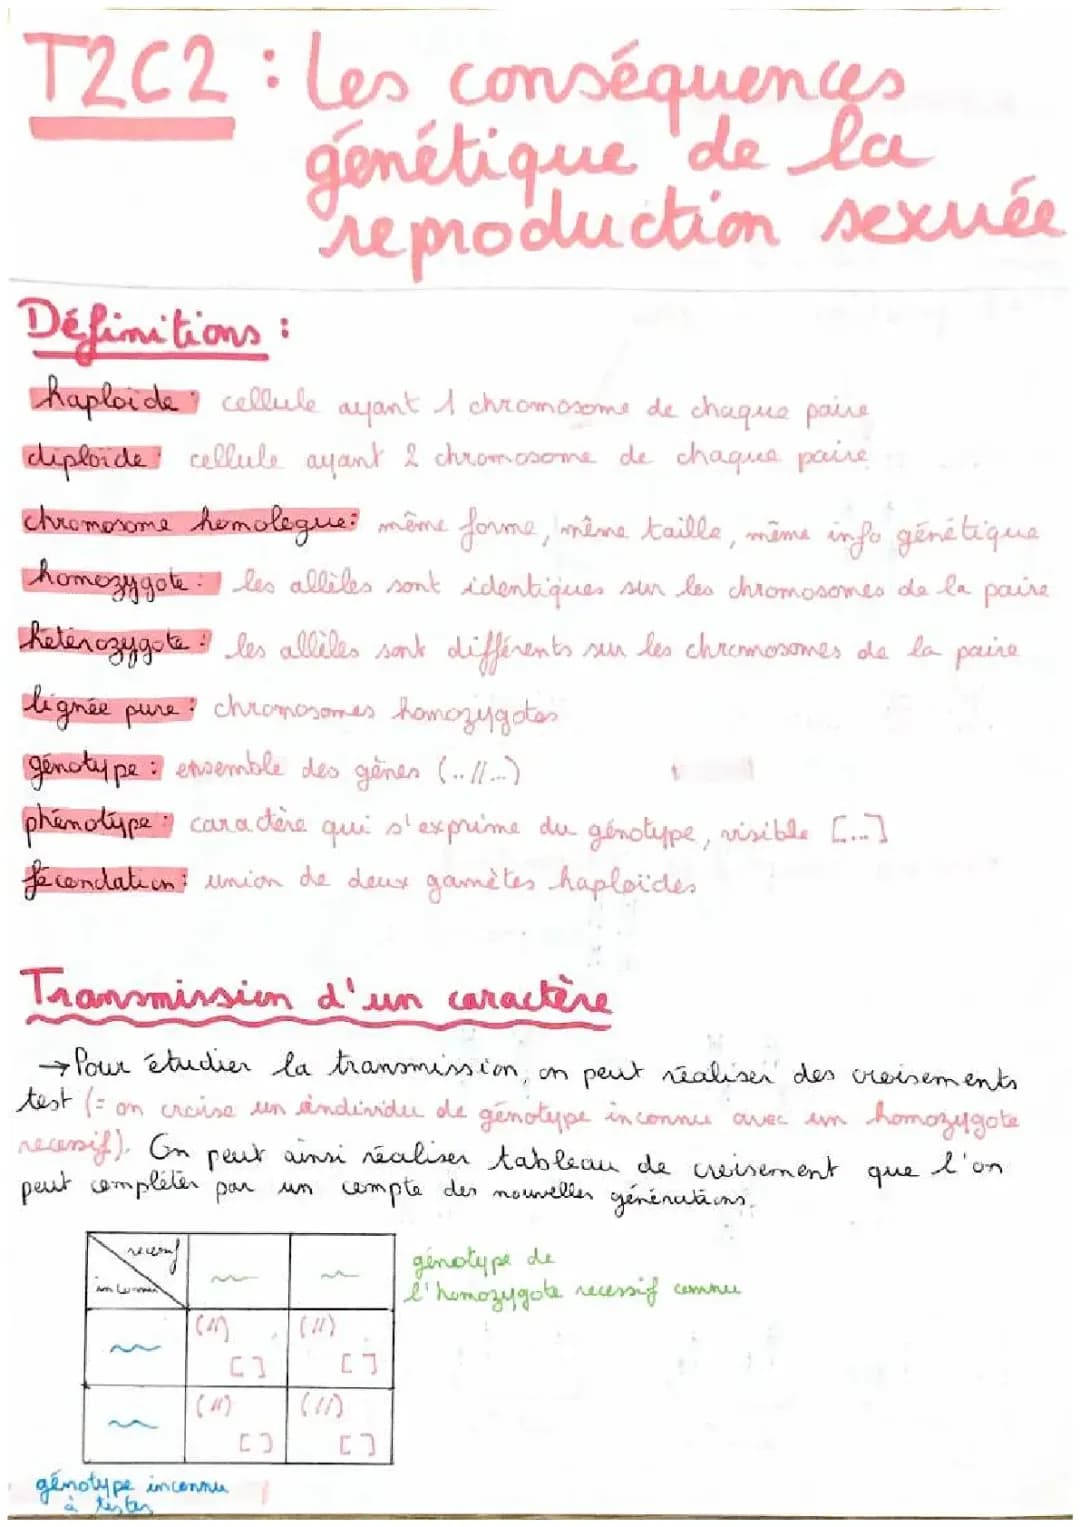 T2C2 : Les conséquences
génétique de la
reproduction sexuée
Définitions :
haploïde : cellule ayant 1 chromosome de chaque paire
diploïde : cellule ayant 2 chromosome de chaque paire
chromosome homologue : même forme, même taille, même info génétique
homozygote : les allèles sont identiques sur les chromosomes de la paire
hétérozygote : les allèles sont différents sur les chromosomes de la paire
lignée pure : chromosomes homozygotes
génotype : ensemble des gènes (..//...)
phénotype : caractère qui s'exprime du génotype, visible [...]
fécondation : union de deux gamètes haploïdes
Transmission d'un caractère
→ Pour étudier la transmission, on peut réaliser des croisements
test (= on croise un individu de génotype inconnu avec un homozygote
récessif). On peut ainsi réaliser tableau de croisement que l'on
peut compléter par un compte des nouvelles générations.
récessif
inconnu
génotype de
l'homozygote récessif connu
(//) (//)
[ ] [ ]
(//) (//)
[ ] [ ]
génotype inconnu
à tester